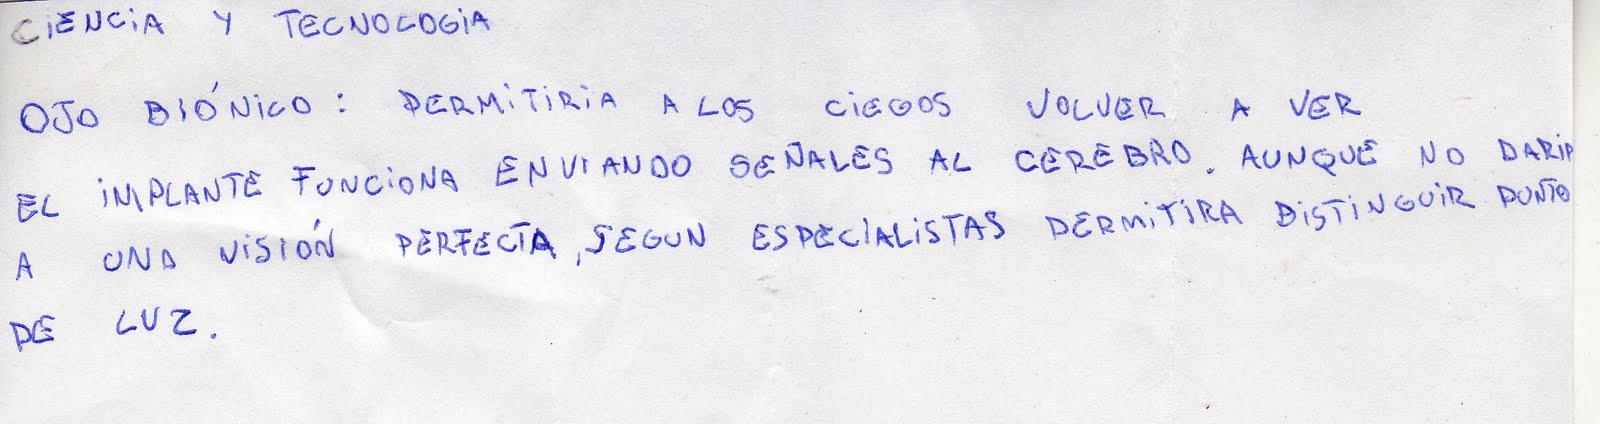 CIENCIA Y TECNOLOGIA
OJO BIÓNICO: PERMITIRIA A LOS CIEGOS VOLVER A VER
EL IMPLANTE FUNCIONA ENVIANDO SEÑALES AL CEREBRO. AUNQUE NO DARIA
A UNA VISIÓN PERFECTA, SEGUN ESPECIALISTAS PERMITIRA DISTINGUIR PUNTO
DE LUZ.